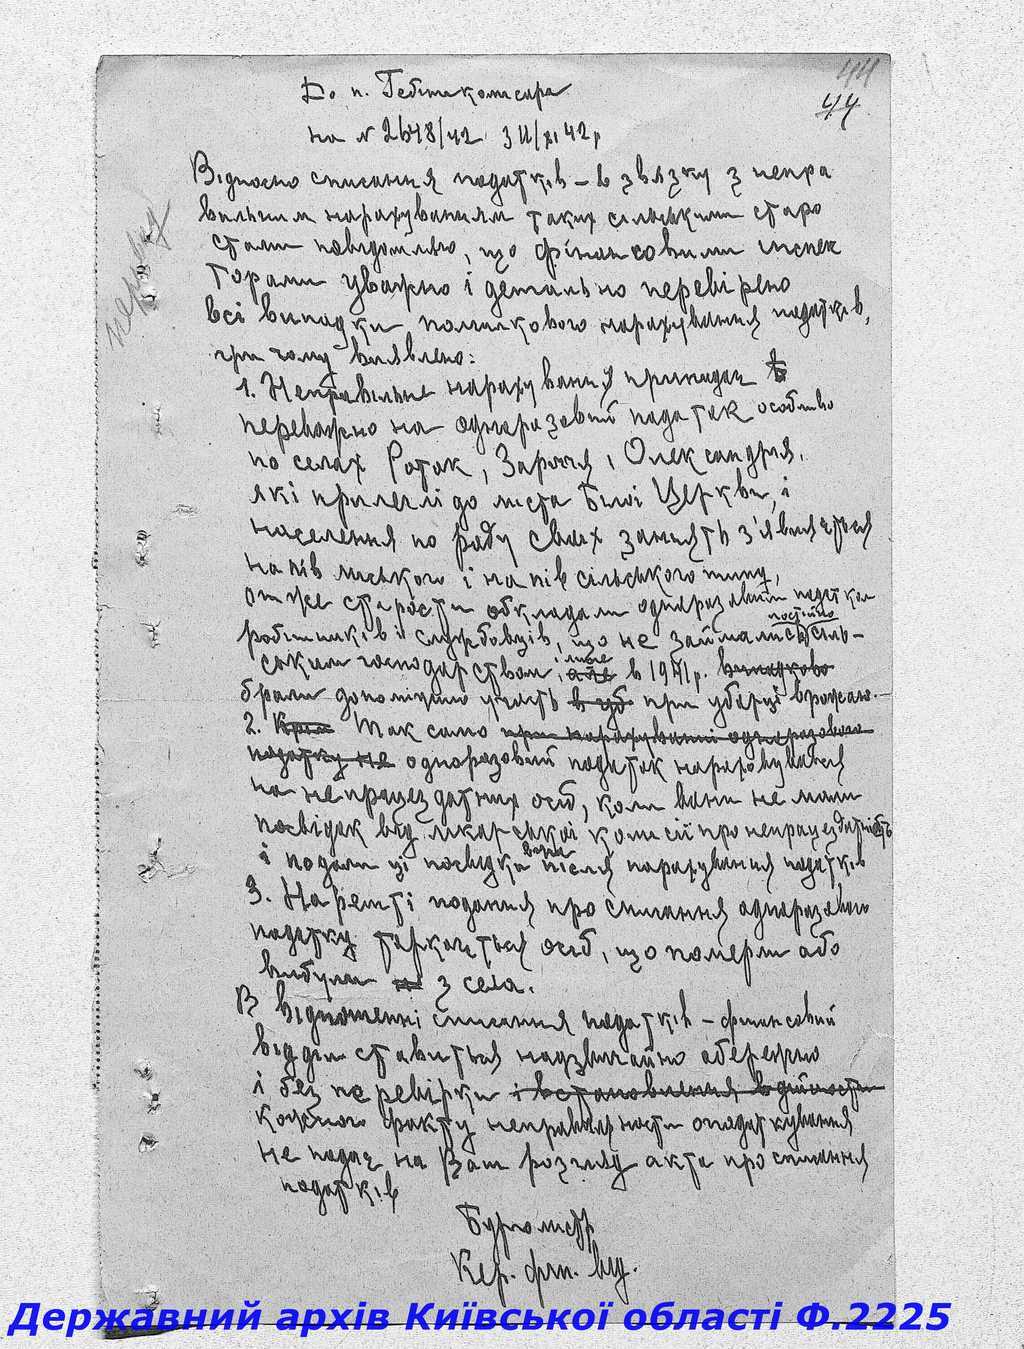 44
44
До п. Гебітскомісара
на № 2648/42 3 11/XI 42 р
Відносно списання податків – в звязку з непра
вильним нарахуванням таких сільськими старо
стами повідомляю, що фінансовими інспек
торами уважно і детально перевірено
всі випадки помилкового нарахування податків,
при чому виявлено:
1. Неправильне нарахування припадає
переважно на одноразовий податок особливо
по селах Роток, Заріччя, Олександрія,
які прилеглі до міста Білої Церкви, і
населення по роду своїх занять з'являється
напів міського і напів сільського типу,
отже старости обкладали одноразовим податком
робітників і службовців, що не займались постійно сіль-
ським господарством, і лише але в 1941 р. випадково
брали допоміжну участь в уб при уборці врожаю.
2. Крім Так само при нарахуванні одноразового
податку не одноразовий податок нараховувався
на непрацездатних осіб, коли вони не мали
посвідок від лікарської комісії про непрацездатність
і подали ці посвідки вже після нарахування податків
3. Нарешті подання про списання одноразового
податку торкається осіб, що померли або
вибули з села.
В відношенні списання податків – фінансовий
відділ ставиться надзвичайно обережно
і без перевірки і встановлення в дійсності
кожного факту неправильности оподаткування
не подає на Ваш розгляд акта про списання
податків
Бургомістр
Кер. фін. від.
Державний архів Київської області Ф.2225